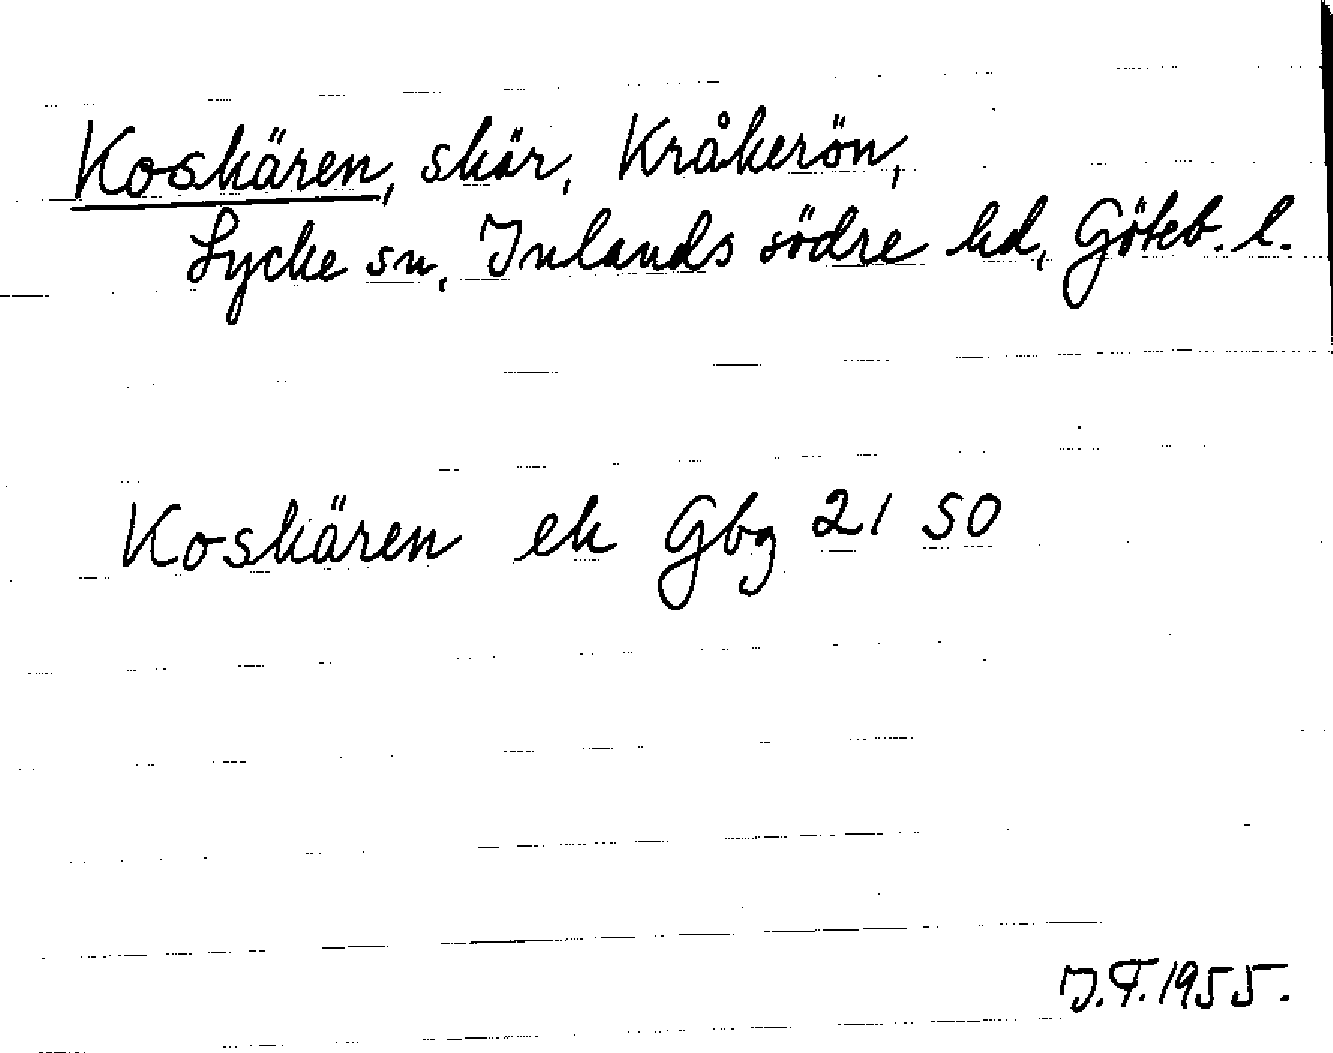 Koskären, skär, Kråkerön,
Lycke sn, Inlands södre hd, Göteb. l.
Koskären ek Gbg 21 SO
J.T. 1955.